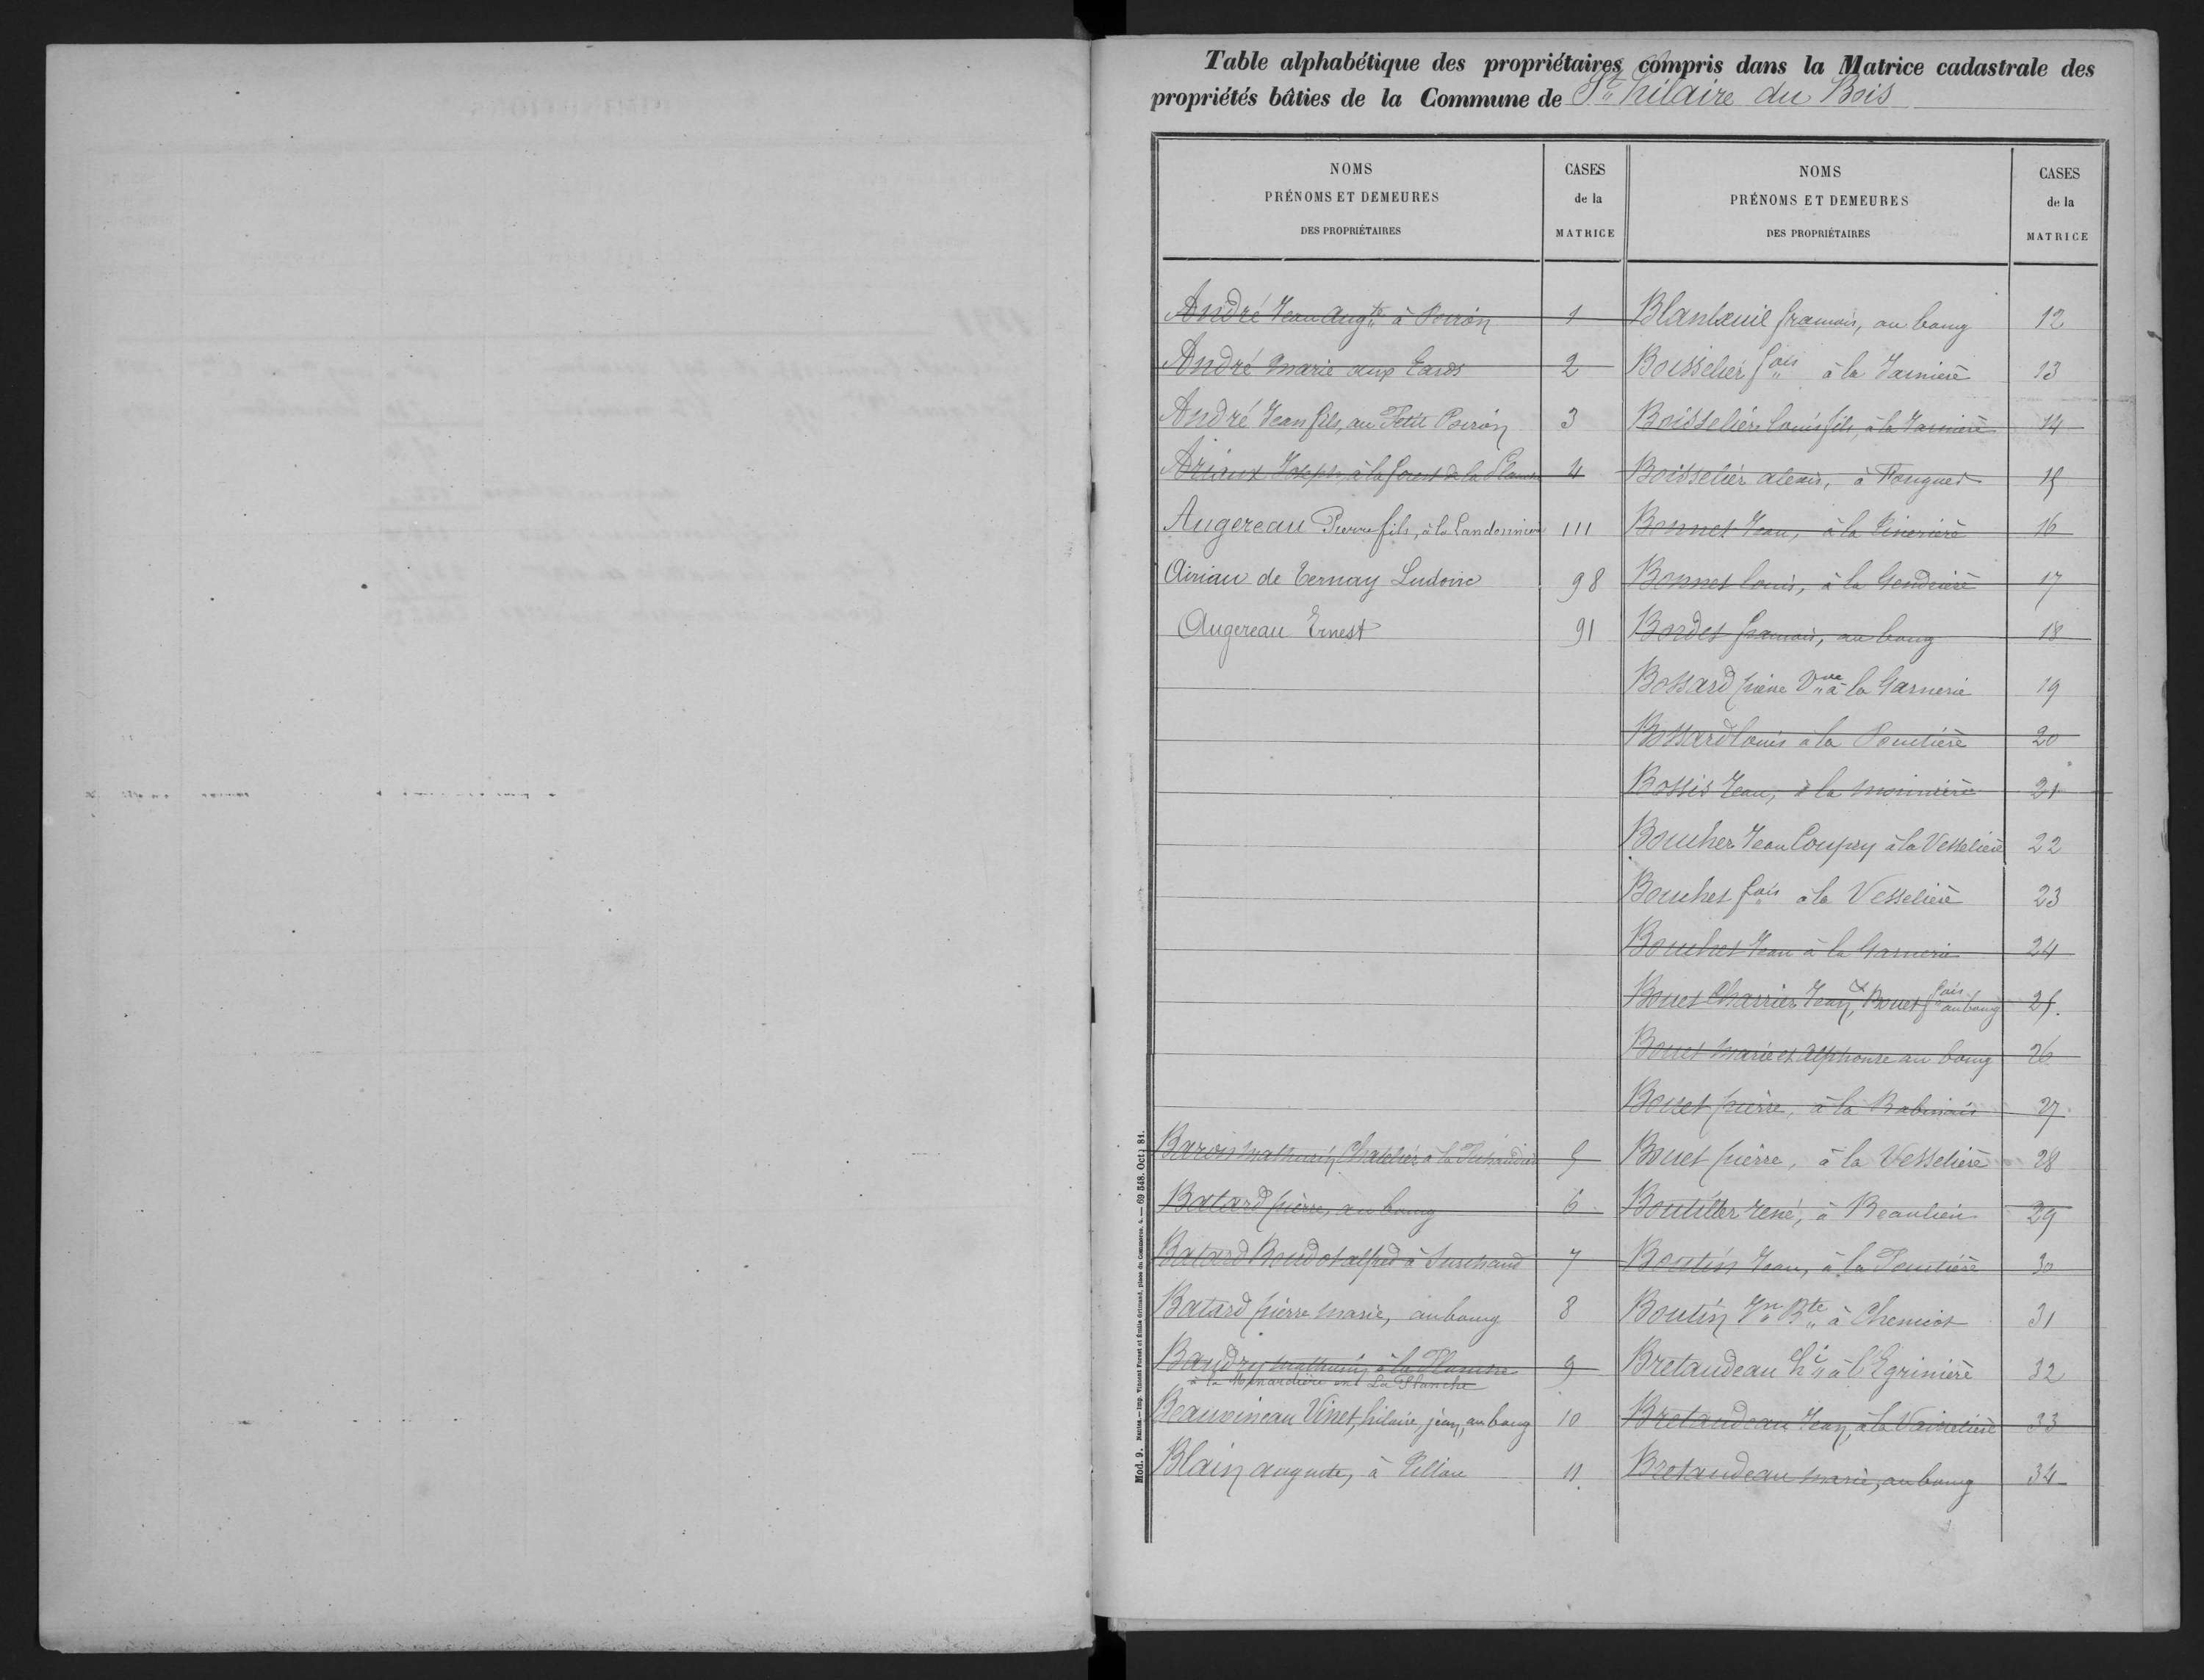 Table alphabétique des propriétaires compris dans la Matrice cadastrale des
propriétés bâties de la Commune de St hilaire du Bois
NOMS
PRÉNOMS ET DEMEURES
DES PROPRIÉTAIRES
CASES
de la
MATRICE
André Jean Augte à Poiron 1
André Marie aux Eards 2
André Jean fils, au Petit Poiron 3
Joseph, à la 4
Augereau Pierre fils, à la Landonnière 111
Airiau de Ternay Ludovic 98
Augereau Ernest 91
Baron Mathurin 5
Batard pierre, au bourg 6
Batard Boudot alfred à 7
Batard pierre marie, au bourg 8
Baudry mathurin à la Planche 9
à la Menardière ent La Planche
Beauvineau Vinet, hilaire, jean, au bourg 10
Blain auguste, à 11
NOMS
PRÉNOMS ET DEMEURES
DES PROPRIÉTAIRES
CASES
de la
MATRICE
Blanloeuil françois, au bourg 12
Boisselier fois à la Jarnière 13
Boisselier louis fils, à la Jarnière 14
Boisselier alexis, à Fouques 15
Bonnet Jean, à la 16
Bonnet louis, à la Gendrière 17
Bordet françois, au bourg 18
Bossard pierre Vve à la Garnerie 19
Bossard louis à la 20
Bossis Jean, à la 21
Boucher Jean Coupry à la Vesselière 22
Bouchet fois à la Vesselière 23
Bouchet Jean à la Garnerie 24
Bouet Charrier Jean, & Bouet fois au bourg 25.
Bouet Marie et Alphonse au bourg 26
Bouet pierre, à la Babinais 27
Bouet pierre, à la Vesselière 28
Boutiller René, à Beaulieu 29
Boutin Jean, à la 30
Boutin Jn Bte à Chemiot 31
Bretaudeau à l'Egrinière 32
Bretaudeau Jean, à la 33
Bretaudeau marie, au bourg 34
Mod. 9. Nantes.—Imp. Vincent Forest et Émile Grimaud, place du Commerce, 4. — 69 548. Oct. 81.